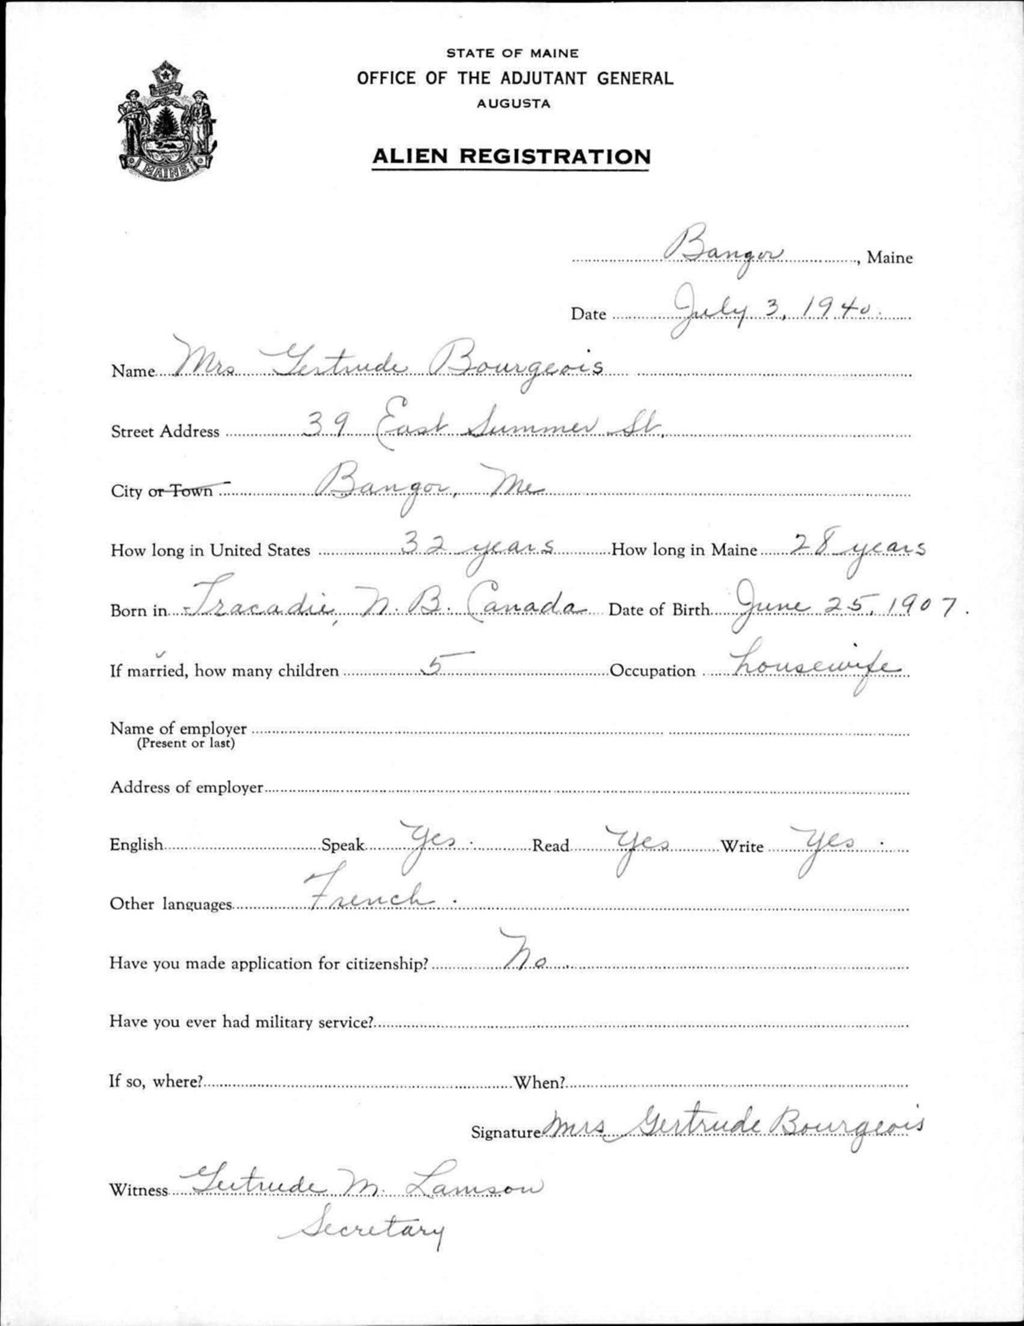 STATE OF MAINE
OFFICE OF THE ADJUTANT GENERAL
AUGUSTA
ALIEN REGISTRATION
MAINE
Bangor, Maine
Date July 3, 1940.
Name Mrs Gertrude Bourgeois
Street Address 39 East Summer St.
City or Town Bangor, Me
How long in United States 32 years How long in Maine 28 years
Born in Tracadie, N. B. Canada Date of Birth June 25, 1907.
If married, how many children 5 Occupation housewife
Name of employer
(Present or last)
Address of employer
English Speak Yes. Read Yes Write Yes.
Other languages French.
Have you made application for citizenship? No.
Have you ever had military service?
If so, where? When?
Signature Mrs Gertrude Bourgeois
Witness Gertrude M. Lamson
Secretary